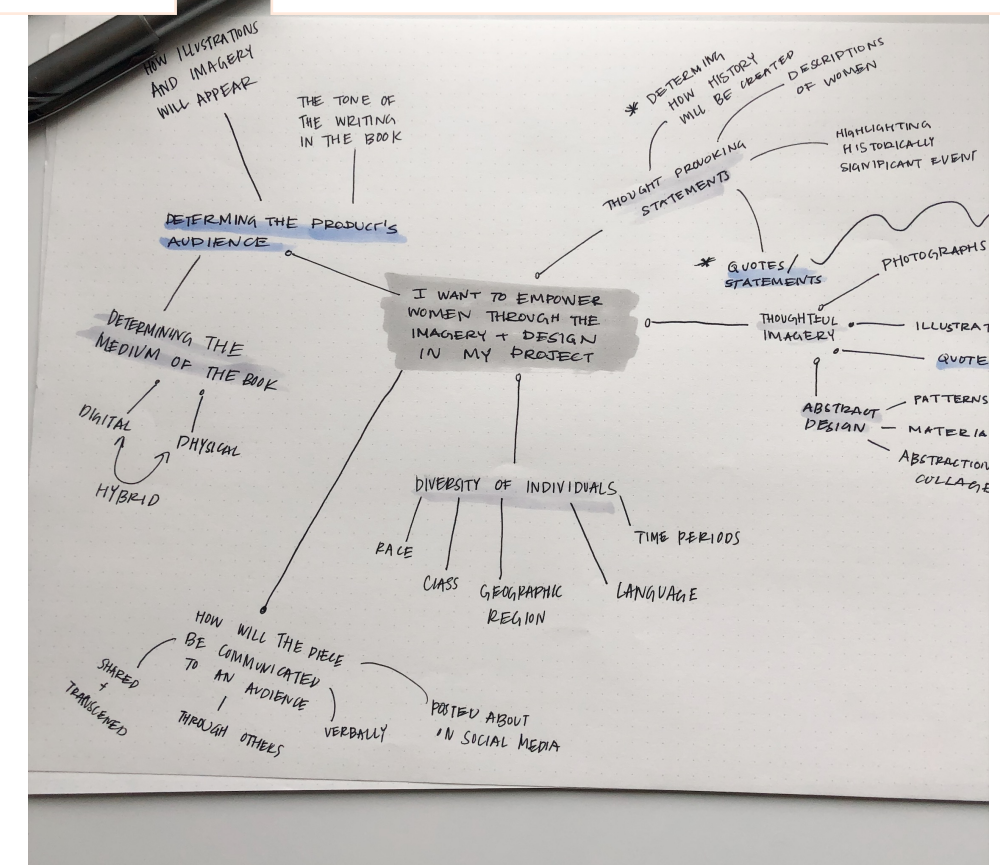 HOW ILLUSTRATIONS
AND IMAGERY
WILL APPEAR
THE TONE OF
THE WRITING
IN THE BOOK
DETERMING THE PRODUCT'S
AUDIENCE
DETERMINING THE
MEDIUM OF THE BOOK
DIGITAL
PHYSICAL
HYBRID
I WANT TO EMPOWER
WOMEN THROUGH THE
IMAGERY + DESIGN
IN MY PROJECT
* DETERMING
HOW HISTORY
WILL BE CREATED
DESCRIPTIONS
OF WOMEN
THOUGHT PROVOKING
STATEMENTS
HIGHLIGHTING
HISTORICALLY
SIGNIFICANT EVENT
* QUOTES/
STATEMENTS
PHOTOGRAPHS
THOUGHTFUL
IMAGERY
ILLUSTRAT
QUOTE
ABSTRACT
DESIGN
PATTERNS
MATERIA
ABSTRACTION
COLLAGE
DIVERSITY OF INDIVIDUALS
RACE
CLASS
GEOGRAPHIC
REGION
LANGUAGE
TIME PERIODS
HOW WILL THE PIECE
BE COMMUNICATED
TO AN AUDIENCE
SHARED
+
TRANSCENED
THROUGH OTHERS
VERBALLY
POSTED ABOUT
ON SOCIAL MEDIA